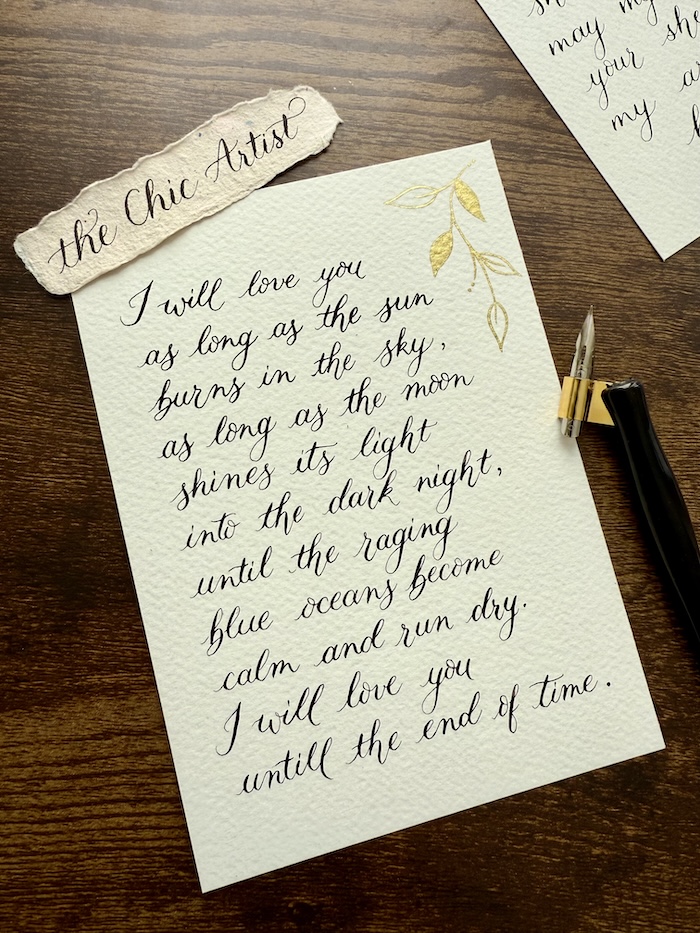 the Chic Artist
I will love you
as long as the sun
burns in the sky,
as long as the moon
shines its light
into the dark night,
until the raging
blue oceans become
calm and run dry.
I will love you
untill the end of time.
may my
your she
my